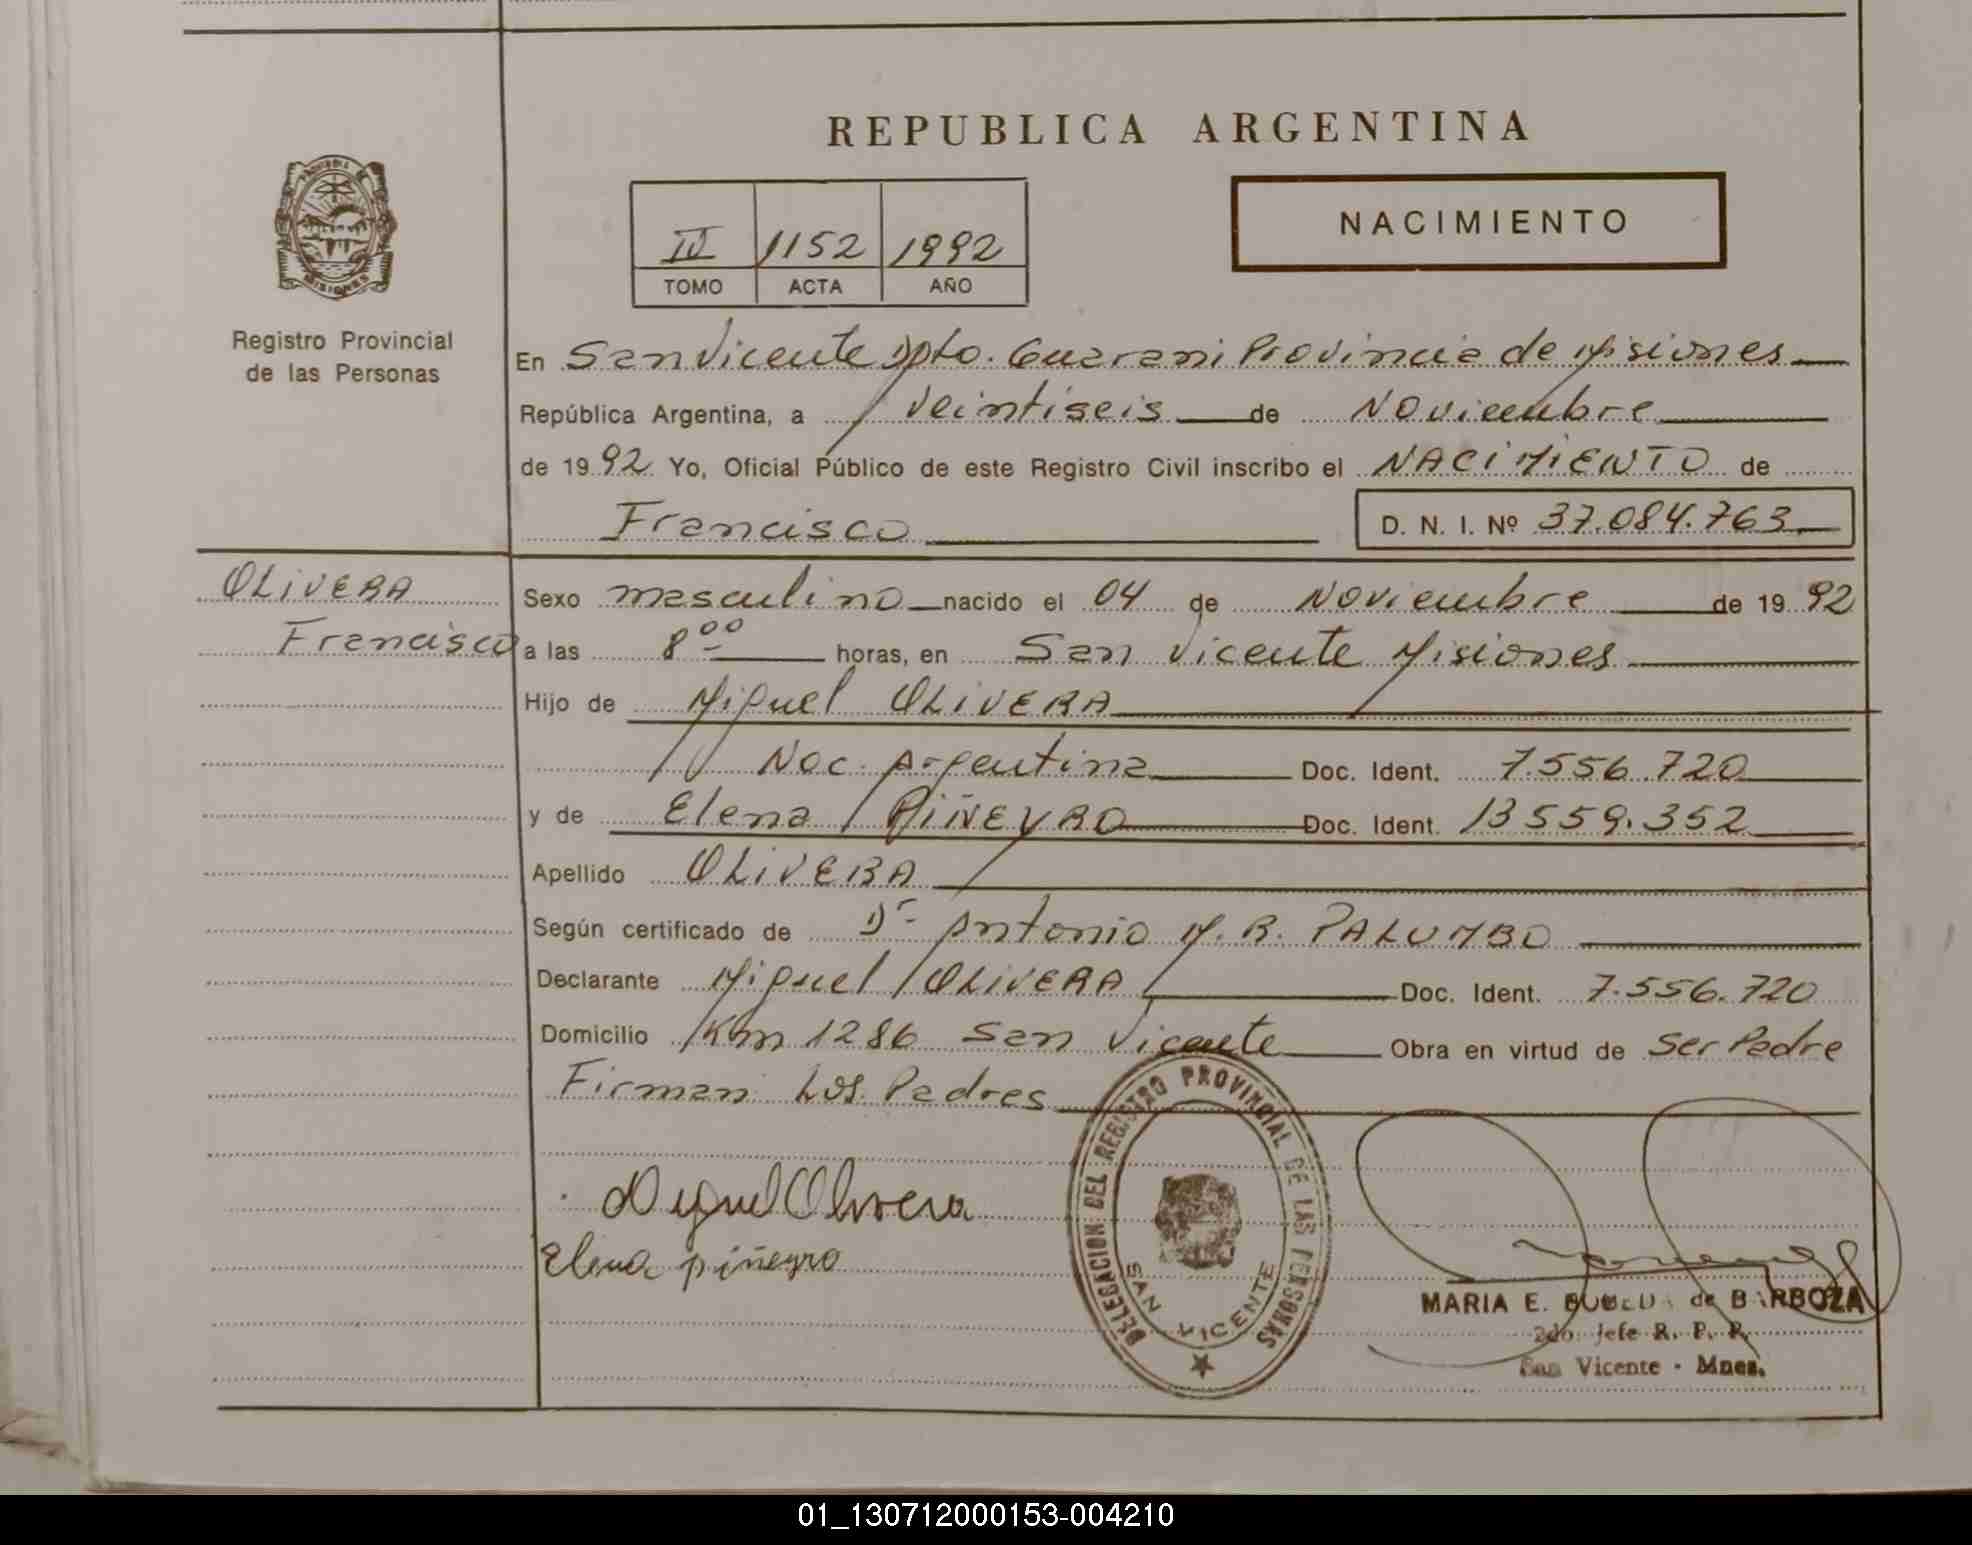 REPUBLICA ARGENTINA
NACIMIENTO
IV 1152 1992
TOMO ACTA AÑO
MISIONES
Registro Provincial
de las Personas
En San Vicente Dpto. Guarani Provincia de Misiones
República Argentina, a veintiseis de Noviembre
de 1992 Yo, Oficial Público de este Registro Civil inscribo el NACIMIENTO de
Francisco
D. N. I. Nº 37.084.763
OLIVERA
Francisco
Sexo masculino nacido el 04 de Noviembre de 1992
a las 8⁰⁰ horas, en San Vicente Misiones
Hijo de Miguel OLIVERA
Nac. Argentina Doc. Ident. 7.556.720
y de Elena PIÑEYRO Doc. Ident. 13559.352
Apellido OLIVERA
Según certificado de Dr Antonio M. R. PALUMBO
Declarante Miguel OLIVERA Doc. Ident. 7.556.720
Domicilio Km 1286 San Vicente Obra en virtud de Ser Padre
Firman Los Padres
Miguel Olivera
Elena piñeyro
DELEGACION DEL REGISTRO PROVINCIAL DE LAS PERSONAS
SAN VICENTE
MARIA E. de BARBOZA
2do. Jefe R. P. P.
San Vicente - Mnes.
01_130712000153-004210